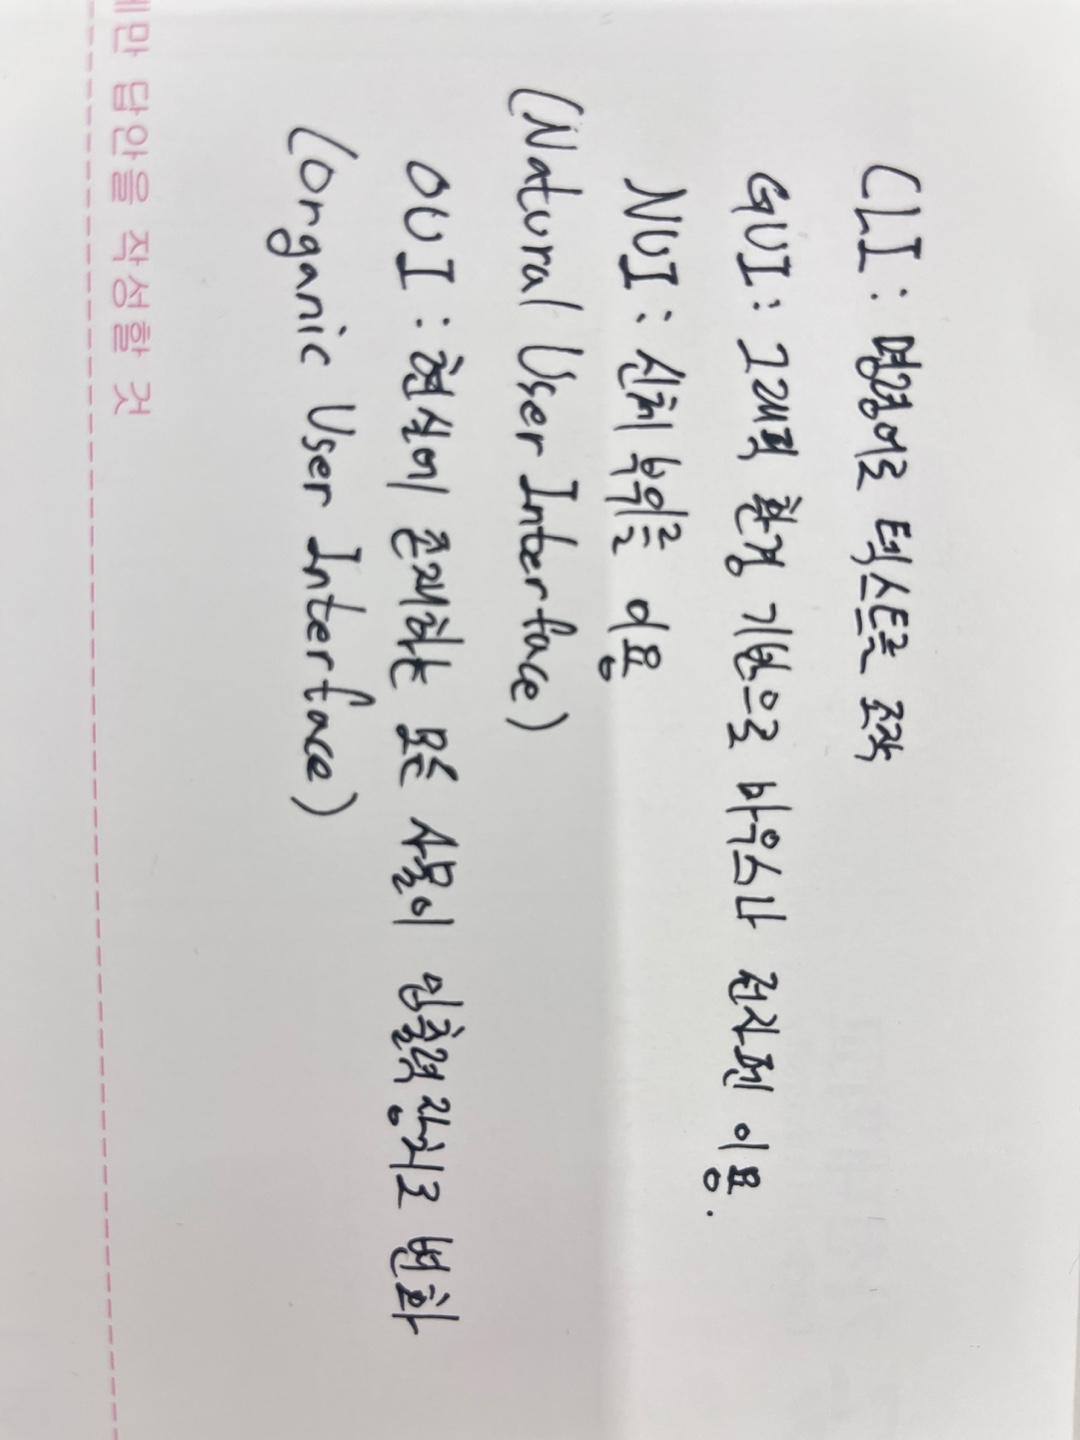 CLI : 명령어로 텍스트를 조작
GUI : 그래픽 환경 기반으로 마우스나 전자펜 이용.
NUI : 신체 부위를 이용
(Natural User Interface)
OUI : 현실에 존재하는 모든 사물이 입출력장치로 변화
(Organic User Interface)
만 답안을 작성할 것